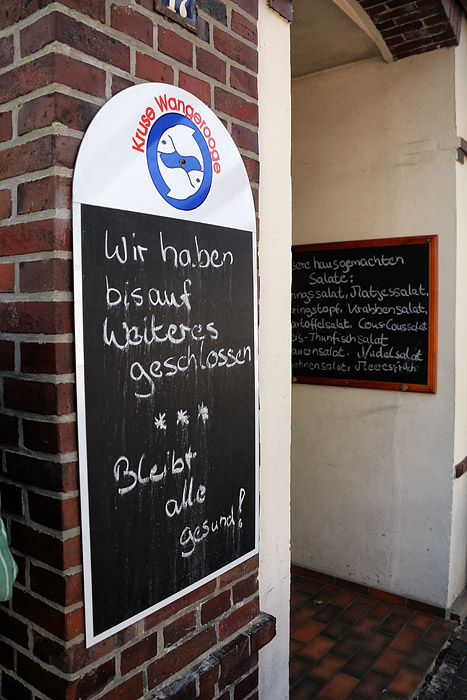 17
Kruse Wangerooge
Wir haben
bis auf
Weiteres
geschlossen
***
Bleibt
alle
gesund!
sere hausgemachten
Salate:
ngssalat, Matjessalat,
ringstopf, Krabbensalat,
rtoffelsalat, Cous-Coussalat
is-Thunfischsalat
auernsalat, Nudelsalat
ohnensalat,